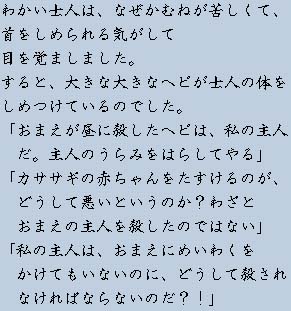 わかい士人は、なぜかむねが苦しくて、
首をしめられる気がして
目を覚ましました。
すると、大きな大きなヘビが士人の体を
しめつけているのでした。
「おまえが昼に殺したヘビは、私の主人
だ。主人のうらみをはらしてやる」
「カササギの赤ちゃんをたすけるのが、
どうして悪いというのか？わざと
おまえの主人を殺したのではない」
「私の主人は、おまえにめいわくを
かけてもいないのに、どうして殺され
なければならないのだ？！」